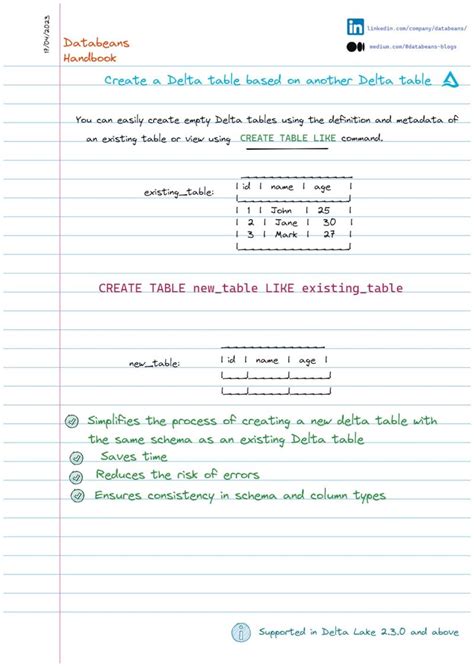 19/04/2023
linkedin.com/company/databeans/
medium.com/@databeans-blogs
Databeans
Handbook
Create a Delta table based on another Delta table
You can easily create empty Delta tables using the definition and metadata of
an existing table or view using CREATE TABLE LIKE command.
existing_table:
| id | name | age |
| 1 | John | 25 |
| 2 | Jane | 30 |
| 3 | Mark | 27 |
CREATE TABLE new_table LIKE existing_table
new_table:
| id | name | age |
Simplifies the process of creating a new delta table with
the same schema as an existing Delta table
Saves time
Reduces the risk of errors
Ensures consistency in schema and column types
Supported in Delta Lake 2.3.0 and above